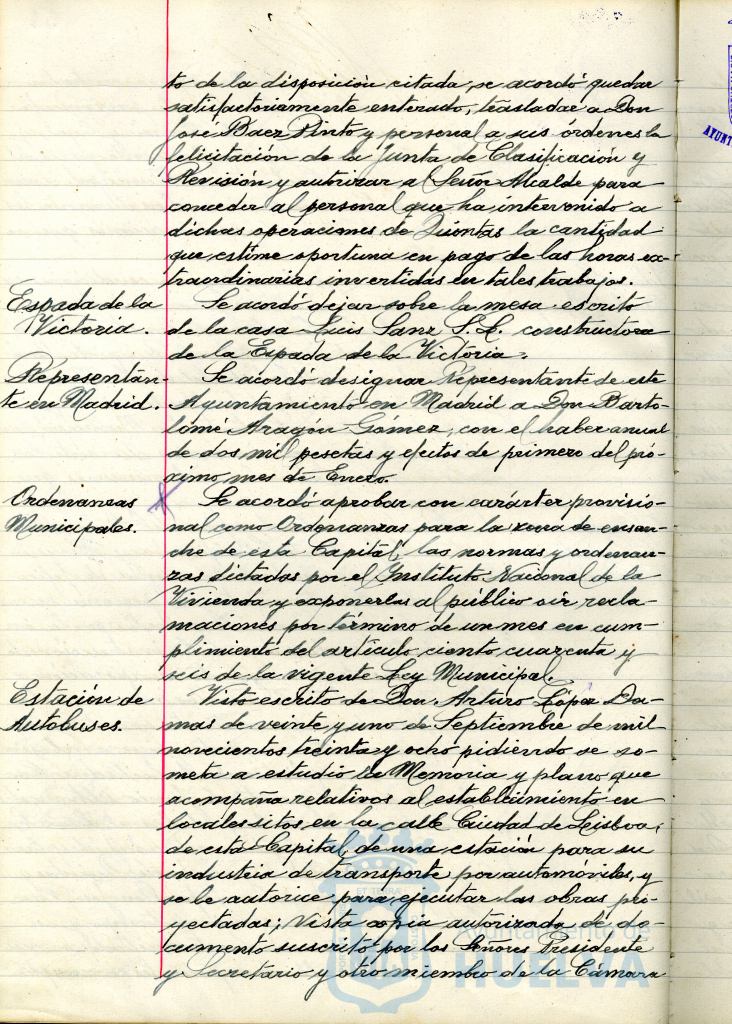 to de la disposición citada, se acordó quedar
satisfactoriamente enterado, trasladar a Don
José Baez Pinto y personal a sus órdenes la
felicitación de la Junta de Clasificación y
Revisión y autorizar al Señor Alcalde para
conceder al personal que ha intervenido a
dichas operaciones de Quintas la cantidad
que estime oportuna en pago de las horas ex-
traordinarias invertidas en tales trabajos.
Espada de la
Victoria.
Se acordó dejar sobre la mesa escrito
de la casa Luis Sanz S.L. constructora
de la Espada de la Victoria.
Representan-
te en Madrid.
Se acordó designar Representante de este
Ayuntamiento en Madrid a Don Barto-
lomé Aragón Gómez, con el haber anual
de dos mil pesetas y efectos de primero del pró-
ximo mes de Enero.
Ordenanzas
Municipales.
Se acordó aprobar con carácter provisio-
nal como Ordenanzas para la zona de ensan-
che de esta Capital, las normas y ordenan-
zas dictadas por el Instituto Nacional de la
Vivienda y exponerlas al público oir recla-
maciones por término de un mes en cum-
plimiento del artículo ciento cuarenta y
seis de la vigente Ley Municipal.
Estación de
Autobuses.
Visto escrito de Don Arturo López Da-
mas de veinte y uno de Septiembre de mil
novecientos treinta y ocho pidiendo se so-
meta a estudio la Memoria y plano que
acompaña relativos al establecimiento en
locales sitos en la calle Ciudad de Lisboa,
de esta Capital, de una estación para su
industria de transporte por automóviles, y
se le autorice para ejecutar las obras pro-
yectadas; Vista copia autorizada de do-
cumento suscrito por los Señores Presidente
y Secretario y otro miembro de la Cámara
Ayuntamiento de
HUELVA